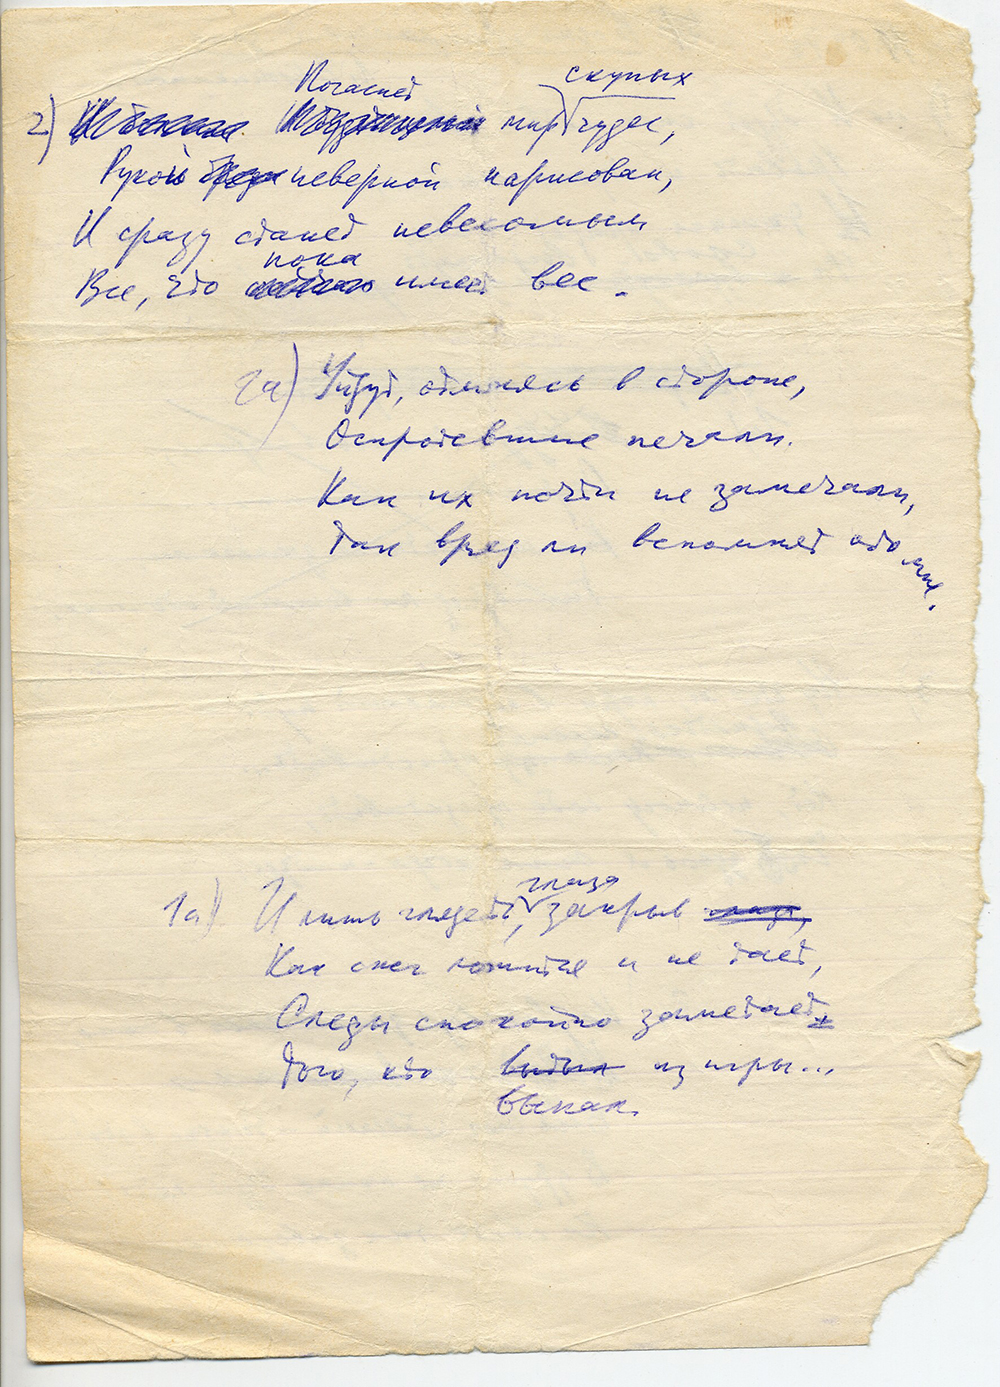 Погаснет скупых
2) мир чудес,
Рукой неверной нарисован,
И сразу станет невесомым
пока
Все, что имеет вес.
2а) Уйдут, обнявшись в стороне,
Осиротевшие печали.
Как их почти не замечали,
Так вряд ли вспомнят обо мне.
глаза
1а) И лишь глядеть, закрыв глаза,
Как снег ложится и не тает,
Следы спокойно заметает
Того, кто выбыл из игры...
выпал